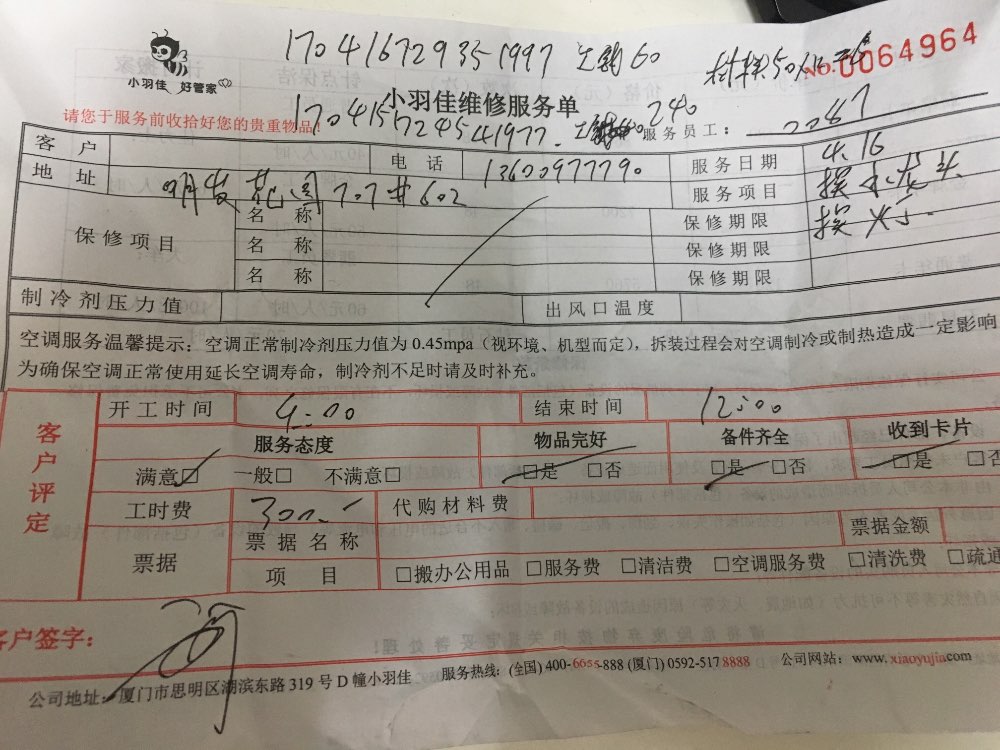 17041672935-1997 60
NO.0064964
小羽佳 好管家
小羽佳维修服务单
请您于服务前收拾好您的贵重物品!
240
服务员工: 2087
客户 电话 13600977790 服务日期 4.16
地址 明发花园 707#602 服务项目 换水龙头
换灯
保修项目 名称 保修期限
名称 保修期限
名称 保修期限
制冷剂压力值 出风口温度
空调服务温馨提示:空调正常制冷剂压力值为 0.45mpa(视环境、机型而定),拆装过程会对空调制冷或制热造成一定影响
为确保空调正常使用延长空调寿命,制冷剂不足时请及时补充。
客户评定
开工时间 9:00 结束时间 12:00
服务态度 物品完好 备件齐全 收到卡片
满意□ 一般□ 不满意□ □是 □否 □是 □否 □是 □否
工时费 300 代购材料费
票据 票据名称 票据金额
项目 □搬办公用品 □服务费 □清洁费 □空调服务费 □清洗费 □疏通
客户签字:
公司地址:厦门市思明区湖滨东路 319 号 D 幢小羽佳 服务热线:(全国) 400-6655-888 (厦门) 0592-5178888 公司网站:www.xiaoyujia.com